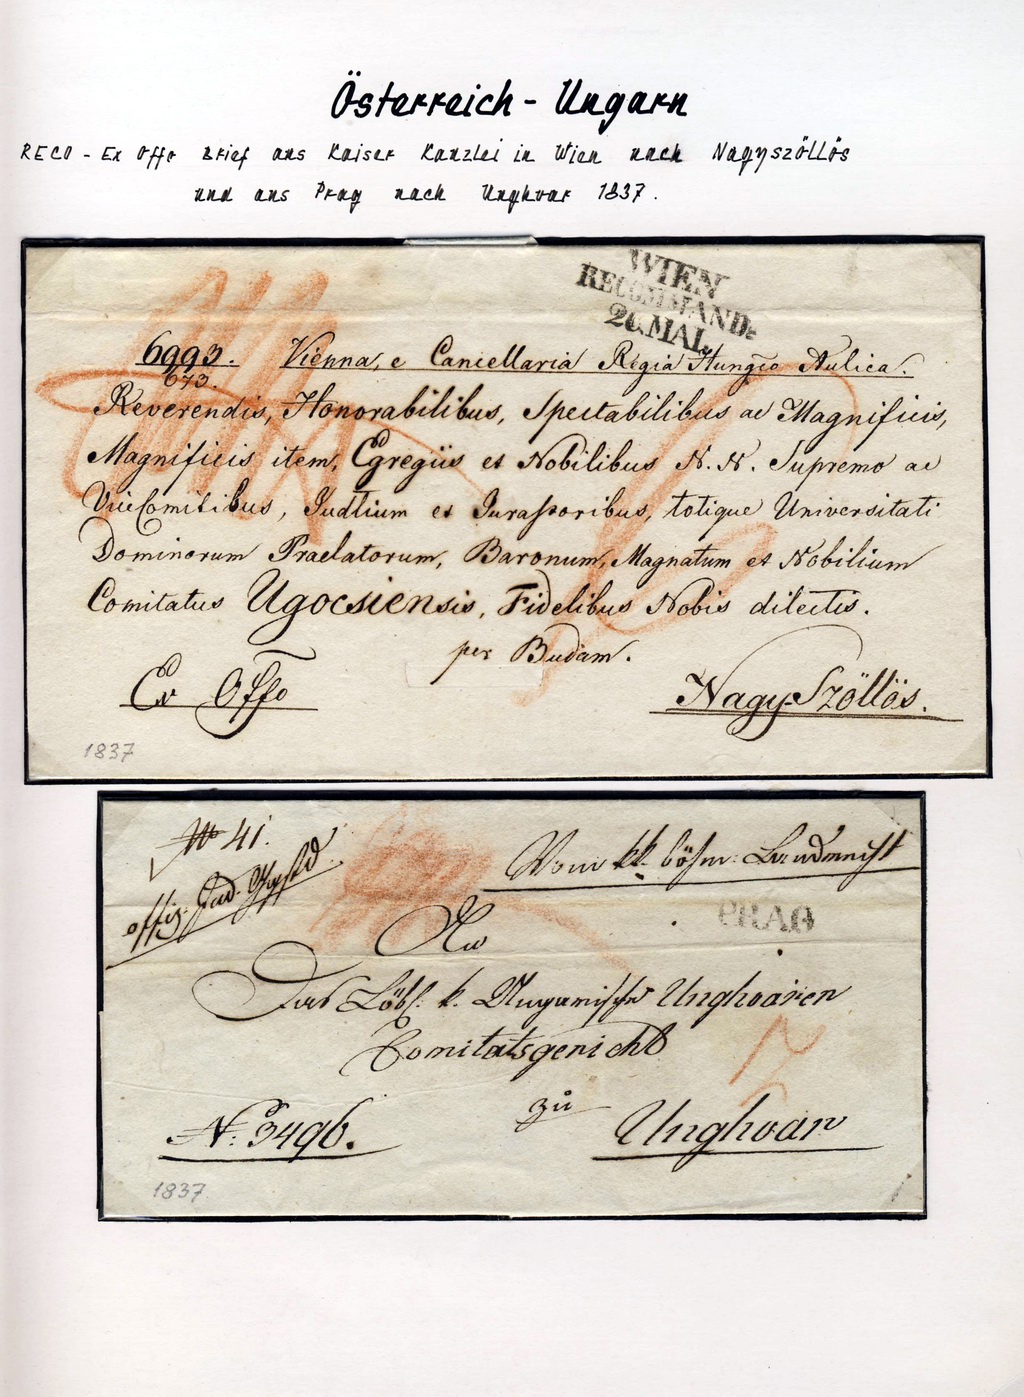 Österreich - Ungarn
RECO - Ex Offo Brief aus Kaiser Kanzlei in Wien nach Nagyszöllös
und aus Prag nach Unghvar 1837.
WIEN
RECOMMAND:
26.MAI.
6993. Vienna, e Cancellaria Regia Hungco Aulica.
673.
Reverendis, Honorabilibus, Spectabilibus ac Magnificis,
Magnificis item, Egregiis et Nobilibus N. N. Supremo ac
ViceComitibus, Judlium et Jurassoribus, totique Universitati
Dominorum Praelatorum, Baronum, Magnatum et Nobilium
Comitatus Ugocsiensis, Fidelibus Nobis dilectis.
per Budam.
Ex Offo Nagy-Szöllös.
1837
No 41.
Vom kk. böhm:
PRAG
An
Das Löbl. k. Ungarische Unghvárer
Comitatsgericht
zu
N: 3496. Unghvar
1837